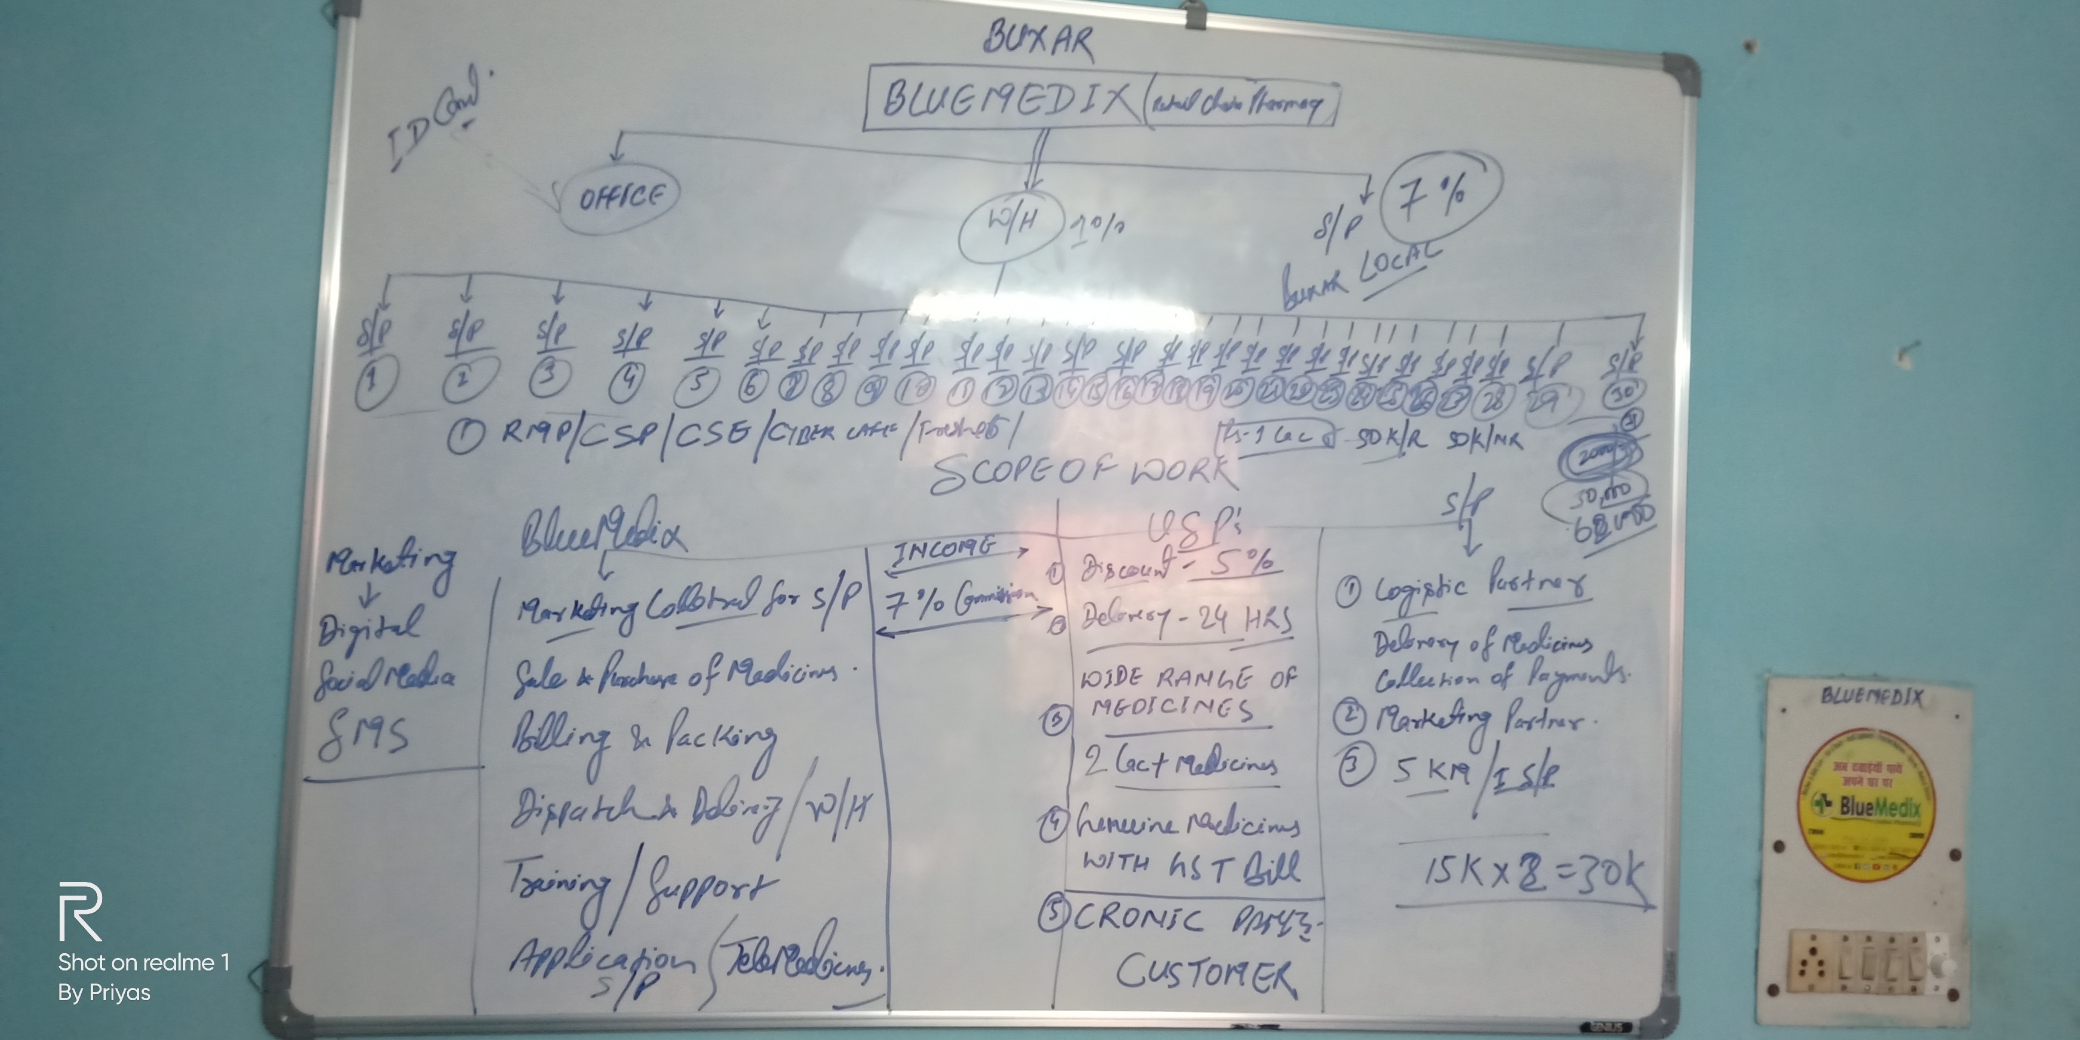 BUXAR
BLUEMEDIX (Retail Chain Pharmacy
ID Card.
OFFICE
W/H 1%
S/P 7%
BUXAR LOCAL
S/P S/P S/P S/P S/P S/P S/P S/P S/P S/P S/P S/P S/P S/P S/P S/P S/P S/P S/P S/P S/P S/P S/P S/P S/P S/P S/P S/P S/P
1 2 3 4 5 6 7 8 9 10 11 12 13 14 15 16 17 18 19 20 21 22 23 24 25 26 27 28 29 30
31
① RMP/CSP/CSE/CIBER CAFE/Freshers/
Rs-1 Lac 50K/R 50K/NR
50,000
SCOPE OF WORK
Marketing
Digital
Social Media
SMS
BlueMedix
Marketing Collotral for S/P
Sale & Purchase of Medicines.
Billing & Packing
Dispatch & Delivery/W/H
Training/Support
Application / TeleMedicines.
S/P
INCOME
7% Commission
USP's
① Discount - 5%
② Delivery - 24 HRS
③ WIDE RANGE OF
MEDICINES
2 Lact Medicines
④ Genuine Medicines
WITH GST Bill
⑤ CRONIC
CUSTOMER
S/P
① Logistic Partner
Delivery of Medicines
Collection of Payments.
② Marketing Partner.
③ 5 KM/1 S/P
15K X 2 = 30K
BLUEMEDIX
अब दवाईयाँ पायें
अपने घर पर
BlueMedix
GENIUS
R
Shot on realme 1
By Priyas